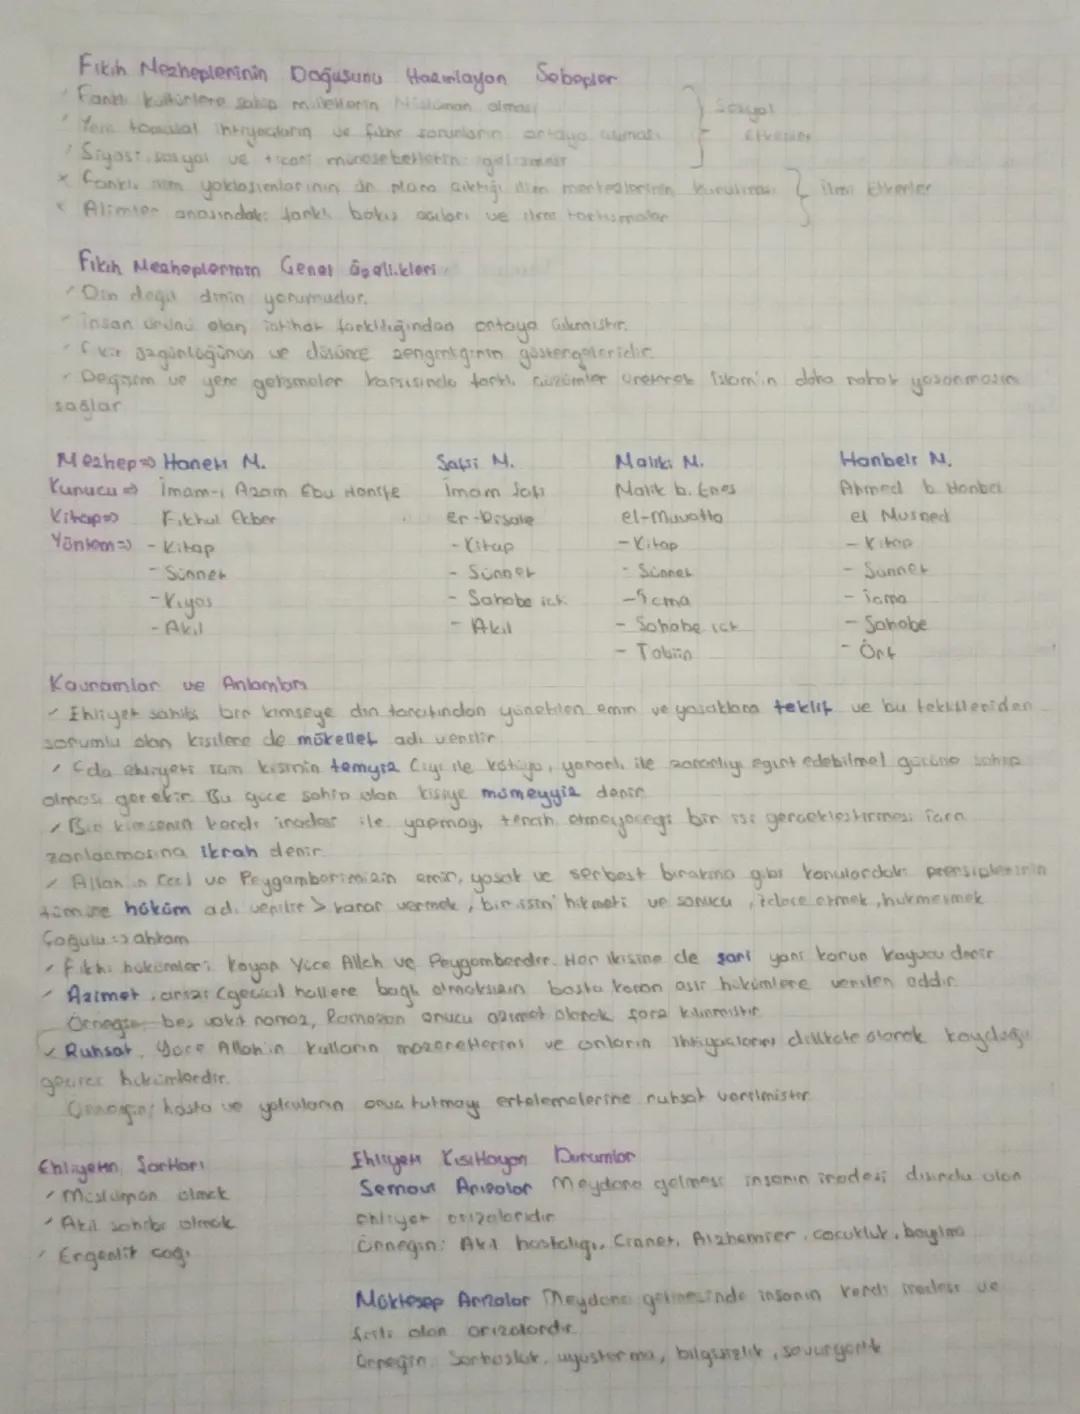 Fıkıh Mezheplerinin Doğuşunu Hazırlayan Sebepler
Farklı kültürlere sahip milletlerin Müslüman olması
Yeni toplumsal ihtiyaçların ve fıkhi sorunların ortaya çıkması
Sosyal
Etkenler
Siyasi, sosyal ve ticari münasebetlerin gelişmesi
x farklı ilim yaklaşımlarının ön plana çıktığı ilim merkezlerinin kurulması
x Alimler arasındaki farklı bakış açıları ve ilmi tartışmalar
ilmi Etkenler
Fıkıh Mezheplerinin Genel özellikleri
Din değil dinin yorumudur.
insan ürünü olan içtihat farklılığından ortaya çıkmıştır.
fikir özgünlüğünün ve düşünce zenginliğinin göstergeleridir.
Değişim ve yeni gelişmeler karşısında farklı çözümler üreterek İslam'ın daha rahat yaşanmasını
sağlar
Mezhep => Hanefi M. Şafii M. Maliki M. Hanbeli M.
Kurucu => İmam-ı Azam Ebu Hanife İmam Şafi Malik b. Enes Ahmed b. Hanbel
Kitap => Fıkhul Ekber er-Risale el-Muvatta el Musned
Yöntem => - Kitap - Kitap - Kitap - Kitap
- Sünnet - Sünnet - Sünnet - Sünnet
- Kıyas - Sahabe ick - İcma - icma
- Akıl - Akıl - Sahabe ick - Sahabe
- Tabiin - Örf
Kavramlar ve Anlamları
Ehliyet sahibi bir kimseye din tarafından yöneltilen emir ve yasaklara teklif ve bu tekliflerden
sorumlu olan kişilere de mükellef adı verilir
Eda ehliyeti için kişinin temyiz (iyi ile kötüyü, yararlı ile zararlıyı ayırt edebilme) gücüne sahip
olması gerekir. Bu güce sahip olan kişiye mümeyyiz denir
Bir kimsenin kendi iradesi ile yapmay, tercih etmeyeceği bir işi gerçekleştirmesi için
zorlanmasına ikrah denir.
Allah'ın (cc) ve Peygamberimizin emir, yasak ve serbest bırakma gibi konulardaki prensiplerinin
tümüne hüküm adı verilir > karar vermek, bir işin hikmeti ve sonucu, idare etmek, hükmetmek
Çoğulu => ahkam
fıkhi hükümleri koyan Yüce Allah ve Peygamberdir. Her ikisine de şari yani kanun koyucu denir
Azimet, arızi (geçici) hallere bağlı olmaksızın başta konan asli hükümlere verilen addır.
Örneğin beş vakit namaz, Ramazan orucu azimet olarak farz kılınmıştır
Ruhsat, Yüce Allah'ın kulların mazeretlerini ve onların ihtiyaçlarını dikkate alarak koyduğu
geçici hükümlerdir.
Örneğin; hasta ve yolcuların oruç tutmayı ertelemelerine ruhsat verilmiştir
Ehliyetin Şartları
Müslüman olmak
Akıl sahibi olmak
Ergenlik çağı
Ehliyeti Kısıtlayan Durumlar
Semavi Arızalar Meydana gelmesi insanın iradesi dışında olan
ehliyet arızalarıdır
Örneğin: Akıl hastalığı, Cinnet, Alzheimer, çocukluk, bayılma
Müktesep Arızalar Meydana gelmesinde insanın kendi iradesi ve
fiili olan arızalardır
Örneğin: Sarhoşluk, uyuşturma, bilgisizlik, savurganlık